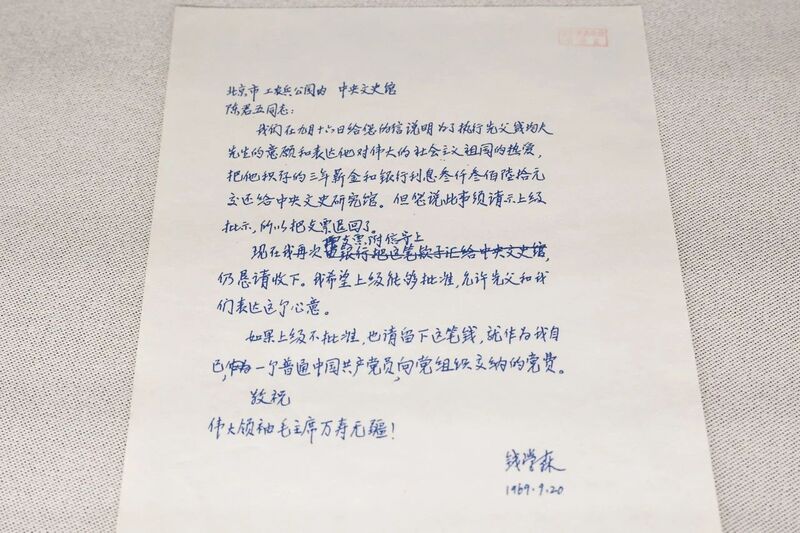 北京市工农兵公园内 中央文史馆
陈君五同志：
我们在九月十六日给您的信说明为了执行先父钱均夫
先生的意愿和表达他对伟大的社会主义祖国的热爱，
把他积存的三年薪金和银行利息叁仟叁佰陆拾元
交还给中央文史研究馆。但您说此事须请示上级
批示，所以把支票退回了。
支票附信寄上
现在我再次银行把这笔款子汇给中央文史馆，
仍恳请收下。我希望上级能够批准，允许先父和我
们表达这个心意。
如果上级不批准，也请留下这笔钱，就作为我自
己，作为一个普通中国共产党员，向党组织交纳的党费。
敬祝
伟大领袖毛主席万寿无疆！
钱学森
1969.9.20